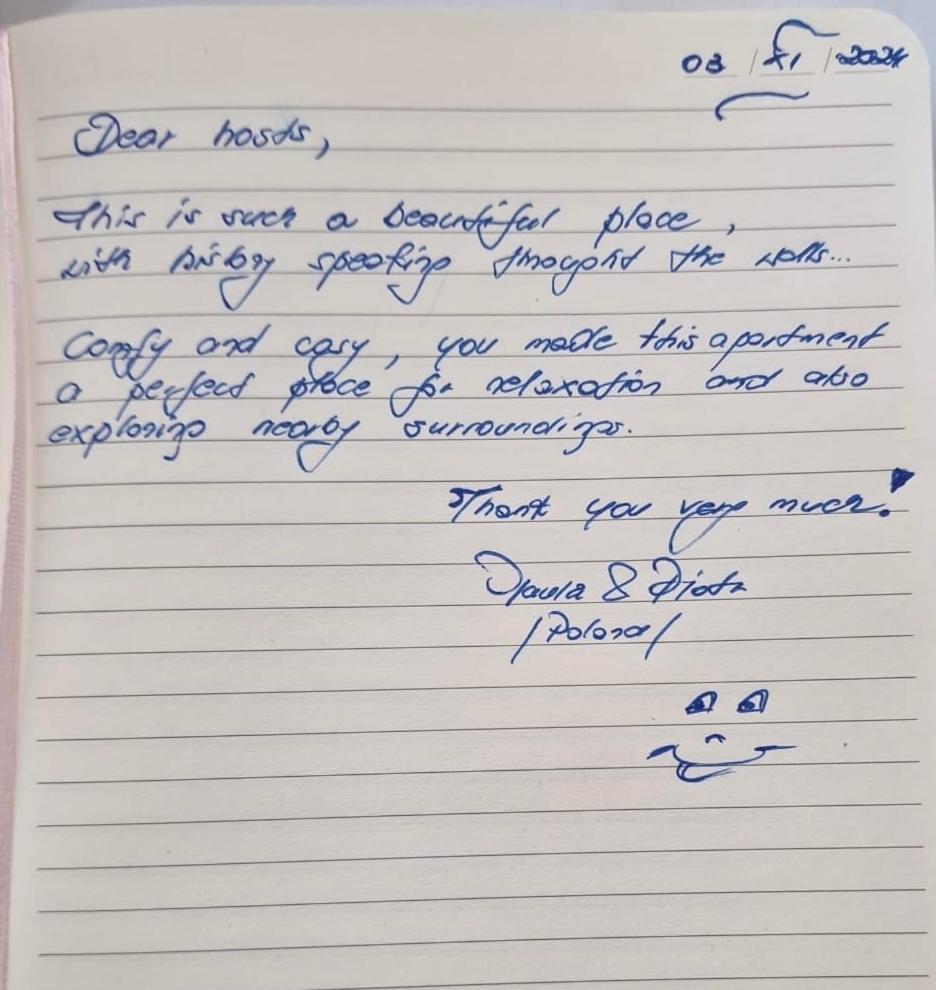 03 / XI / 2024
Dear hosts,
This is such a beautiful place,
with history speaking the walls...
Comfy and cosy, you made this apartment
a perfect place for relaxation and also
exploring nearby surroundings.
Thank you very much!
Paula & Piotr
/Poland/